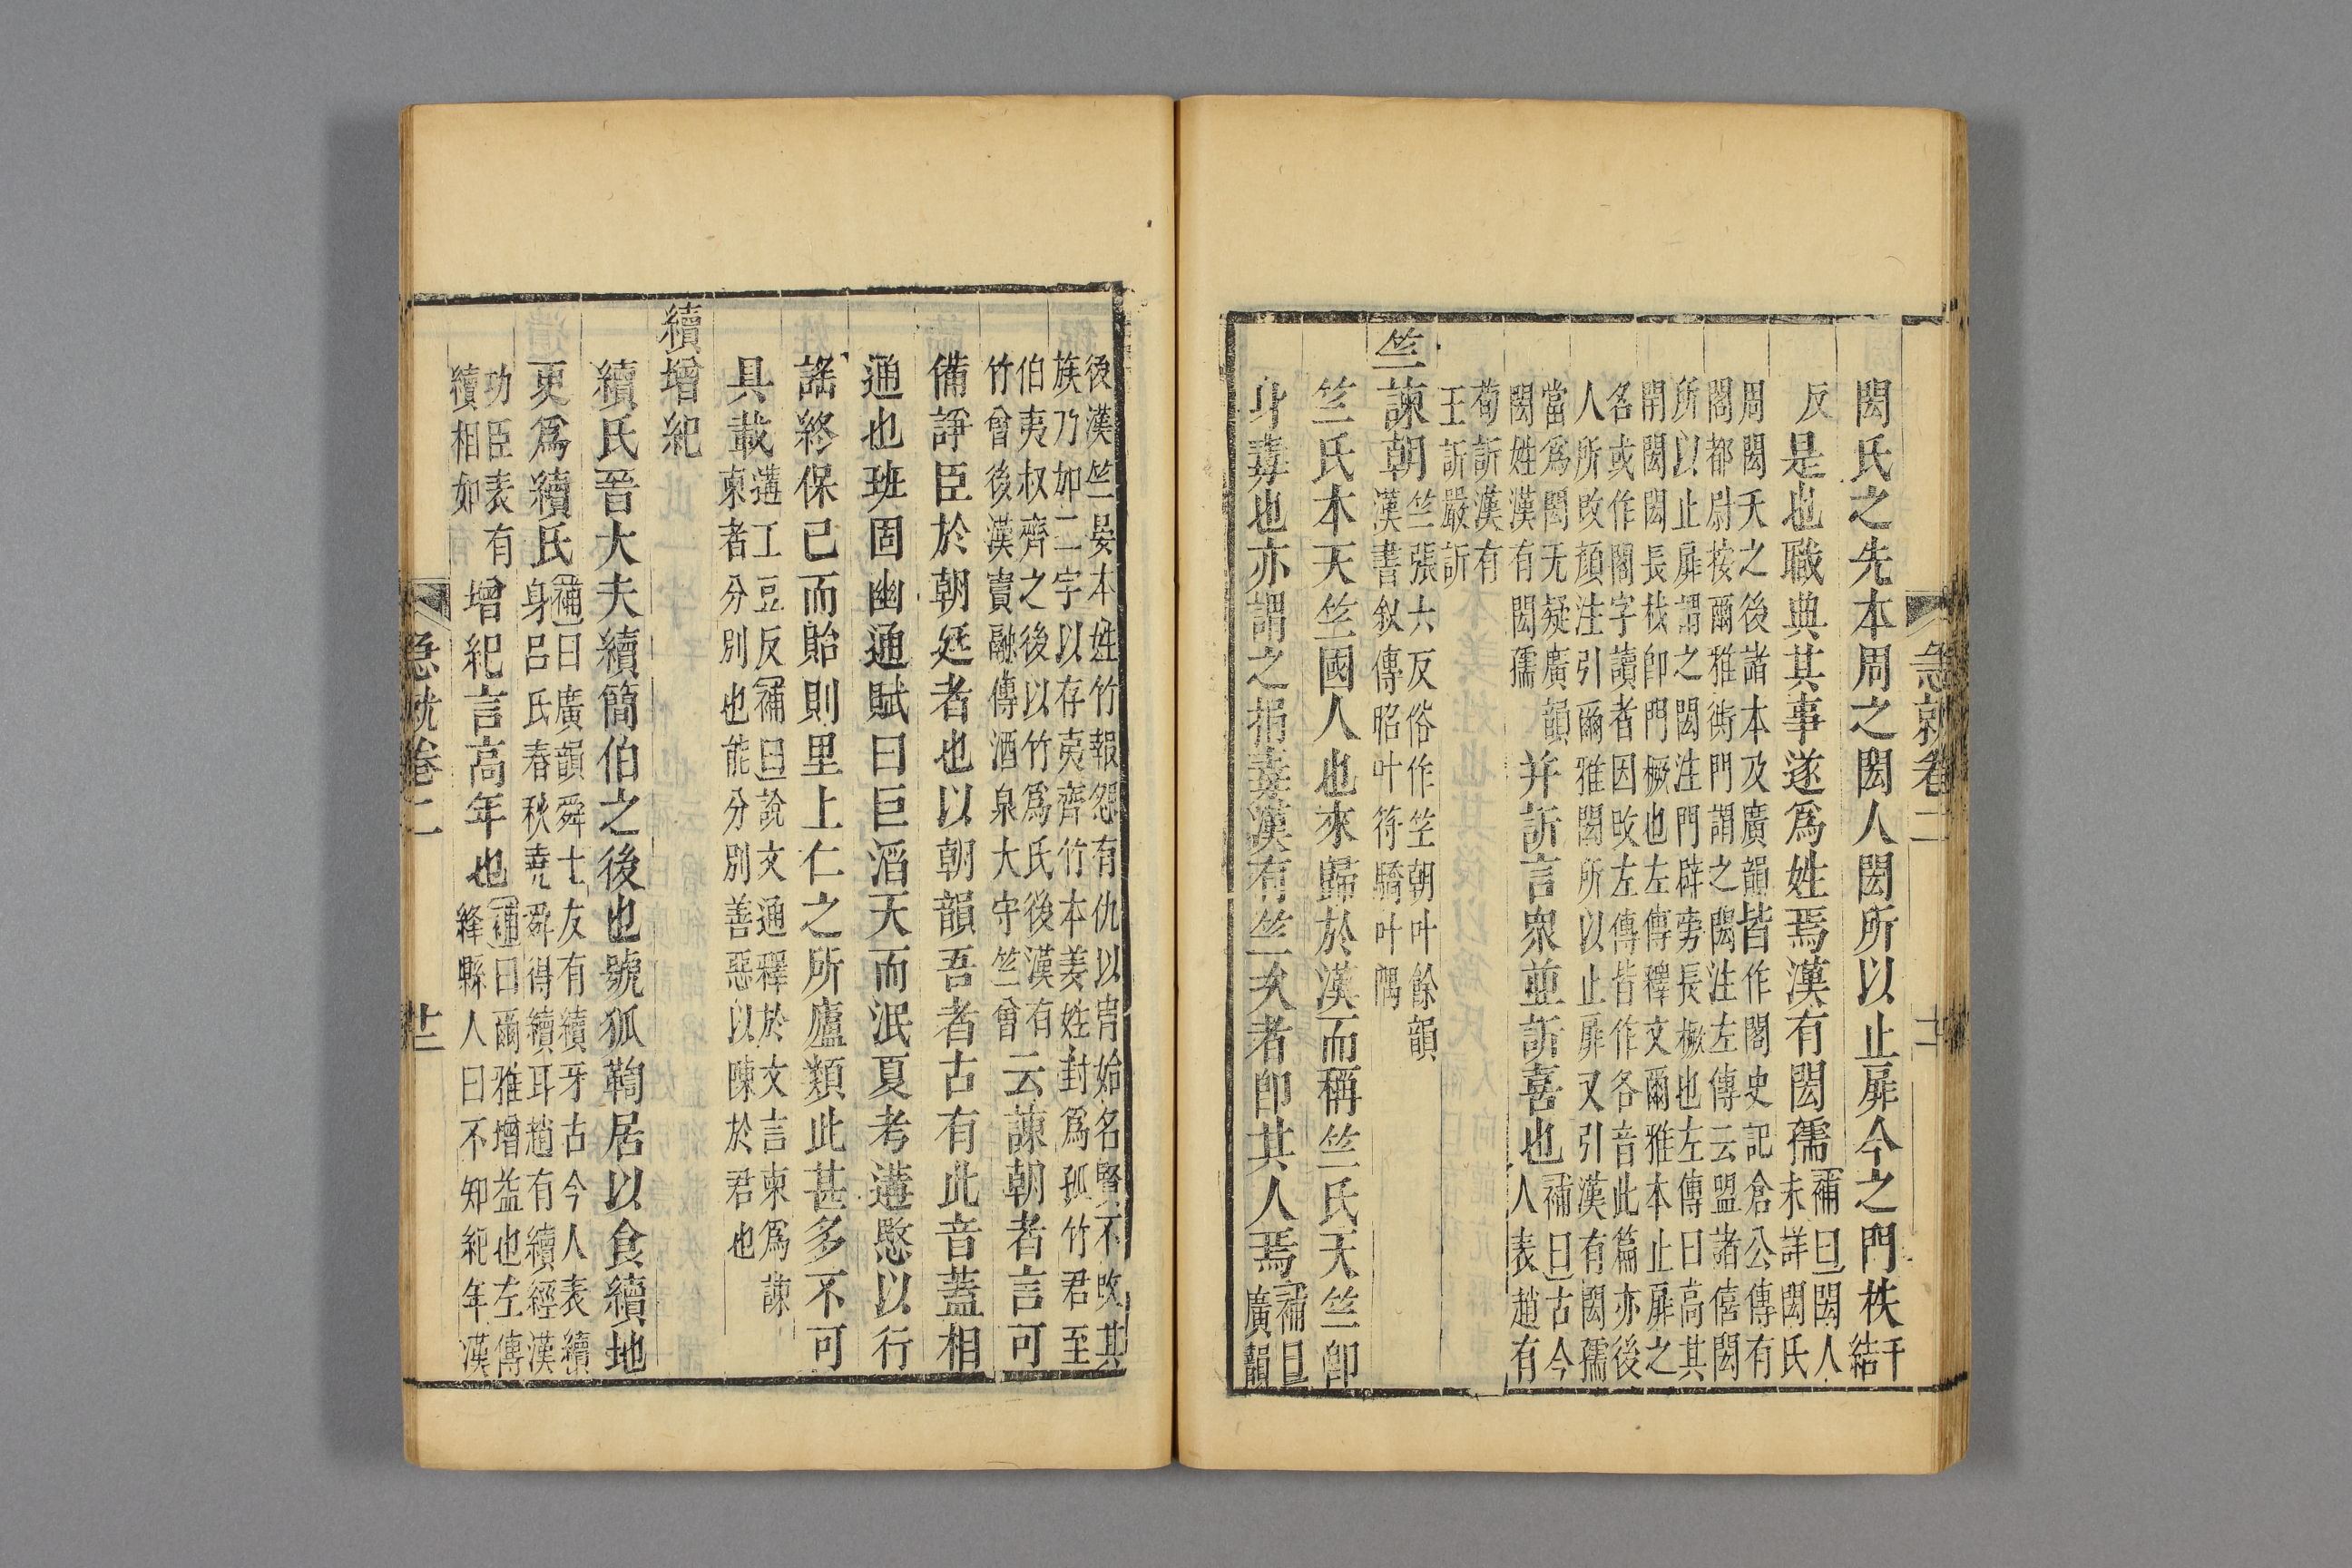 急就卷二
閎氏之先本周之閎人閎所以止扉今之門柣千結
反是也職典其事遂爲姓焉漢有閎孺補曰閎人未詳閎氏
周閎夭之後諸本及廣韻皆作閣史記倉公傳有
閣都尉按爾雅衖門謂之閎注左傳云盟諸僖閎
所以止扉謂之閎注門辟旁長橛也左傳曰高其
閈閎閎長杙卽門橛也左傳釋文爾雅本止扉之
名或作閣字讀者因改左傳皆作各音此篇亦後
人所改顏注引爾雅閎所以止扉又引漢有閎孺
當爲閎无疑廣韻
閎姓漢有閎孺
并訢言衆並訢喜也補曰古今人表趙有
荀訢漢有
王訢嚴訢
竺諫朝竺張六反俗作笁朝叶餘韻
漢書叙傳昭叶符驕叶隅
竺氏本天竺國人也來歸於漢而稱竺氏天竺卽
身毒也亦謂之捐毒漢有竺次者卽其人焉補曰廣韻
後漢竺晏本姓竹報怨有仇以胄始名賢不改其
族乃加二字以存夷齊竹本姜姓封爲孤竹君至
伯夷叔齊之後以竹爲氏後漢有
竹曾後漢竇融傳酒泉大守竺曾
云諫朝者言可
備諍臣於朝廷者也以朝韻吾者古有此音蓋相
通也班固幽通賦曰巨滔天而泯夏考遘愍以行
謠終保己而貽則里上仁之所廬類此甚多不可
具載遘工豆反補曰說文通釋於文言柬爲諫
柬者分別也能分別善惡以陳於君也
續增紀
續氏晉大夫續簡伯之後也號狐鞫居以食續地
更爲續氏補曰廣韻舜七友有續牙古今人表續
身呂氏春秋堯舜得續耳趙有續經漢
功臣表有
續相如
增紀言高年也補曰爾雅增益也左傳
絳縣人曰不知紀年漢
急就卷二